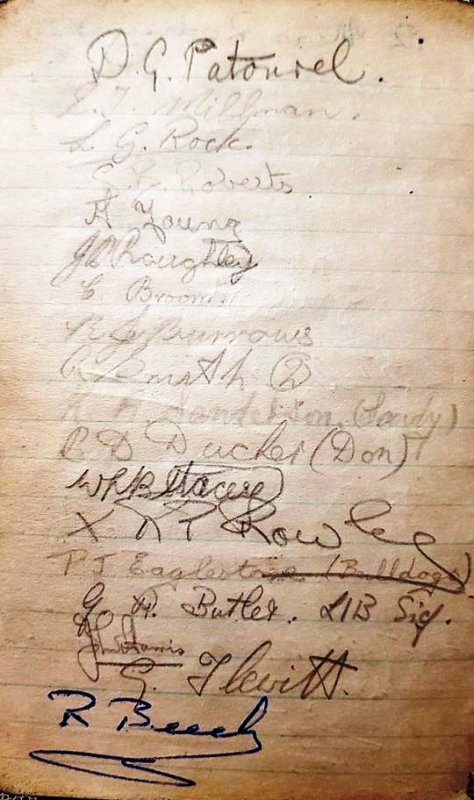 D. G. Patourel.
E. J. Millman.
L. G. Rock.
Roberts
A Young
J Roughley
C Broom
R J Burrows
Smith (2)
R A Sanderson (Sandy)
C D Ducker (Don)
WRB Stacey
X N P Rowley
P J Eaglestone (Bulldog)
G. W. Butler. L1B Sig.
John Harris
G. Hewitt.
R Beech